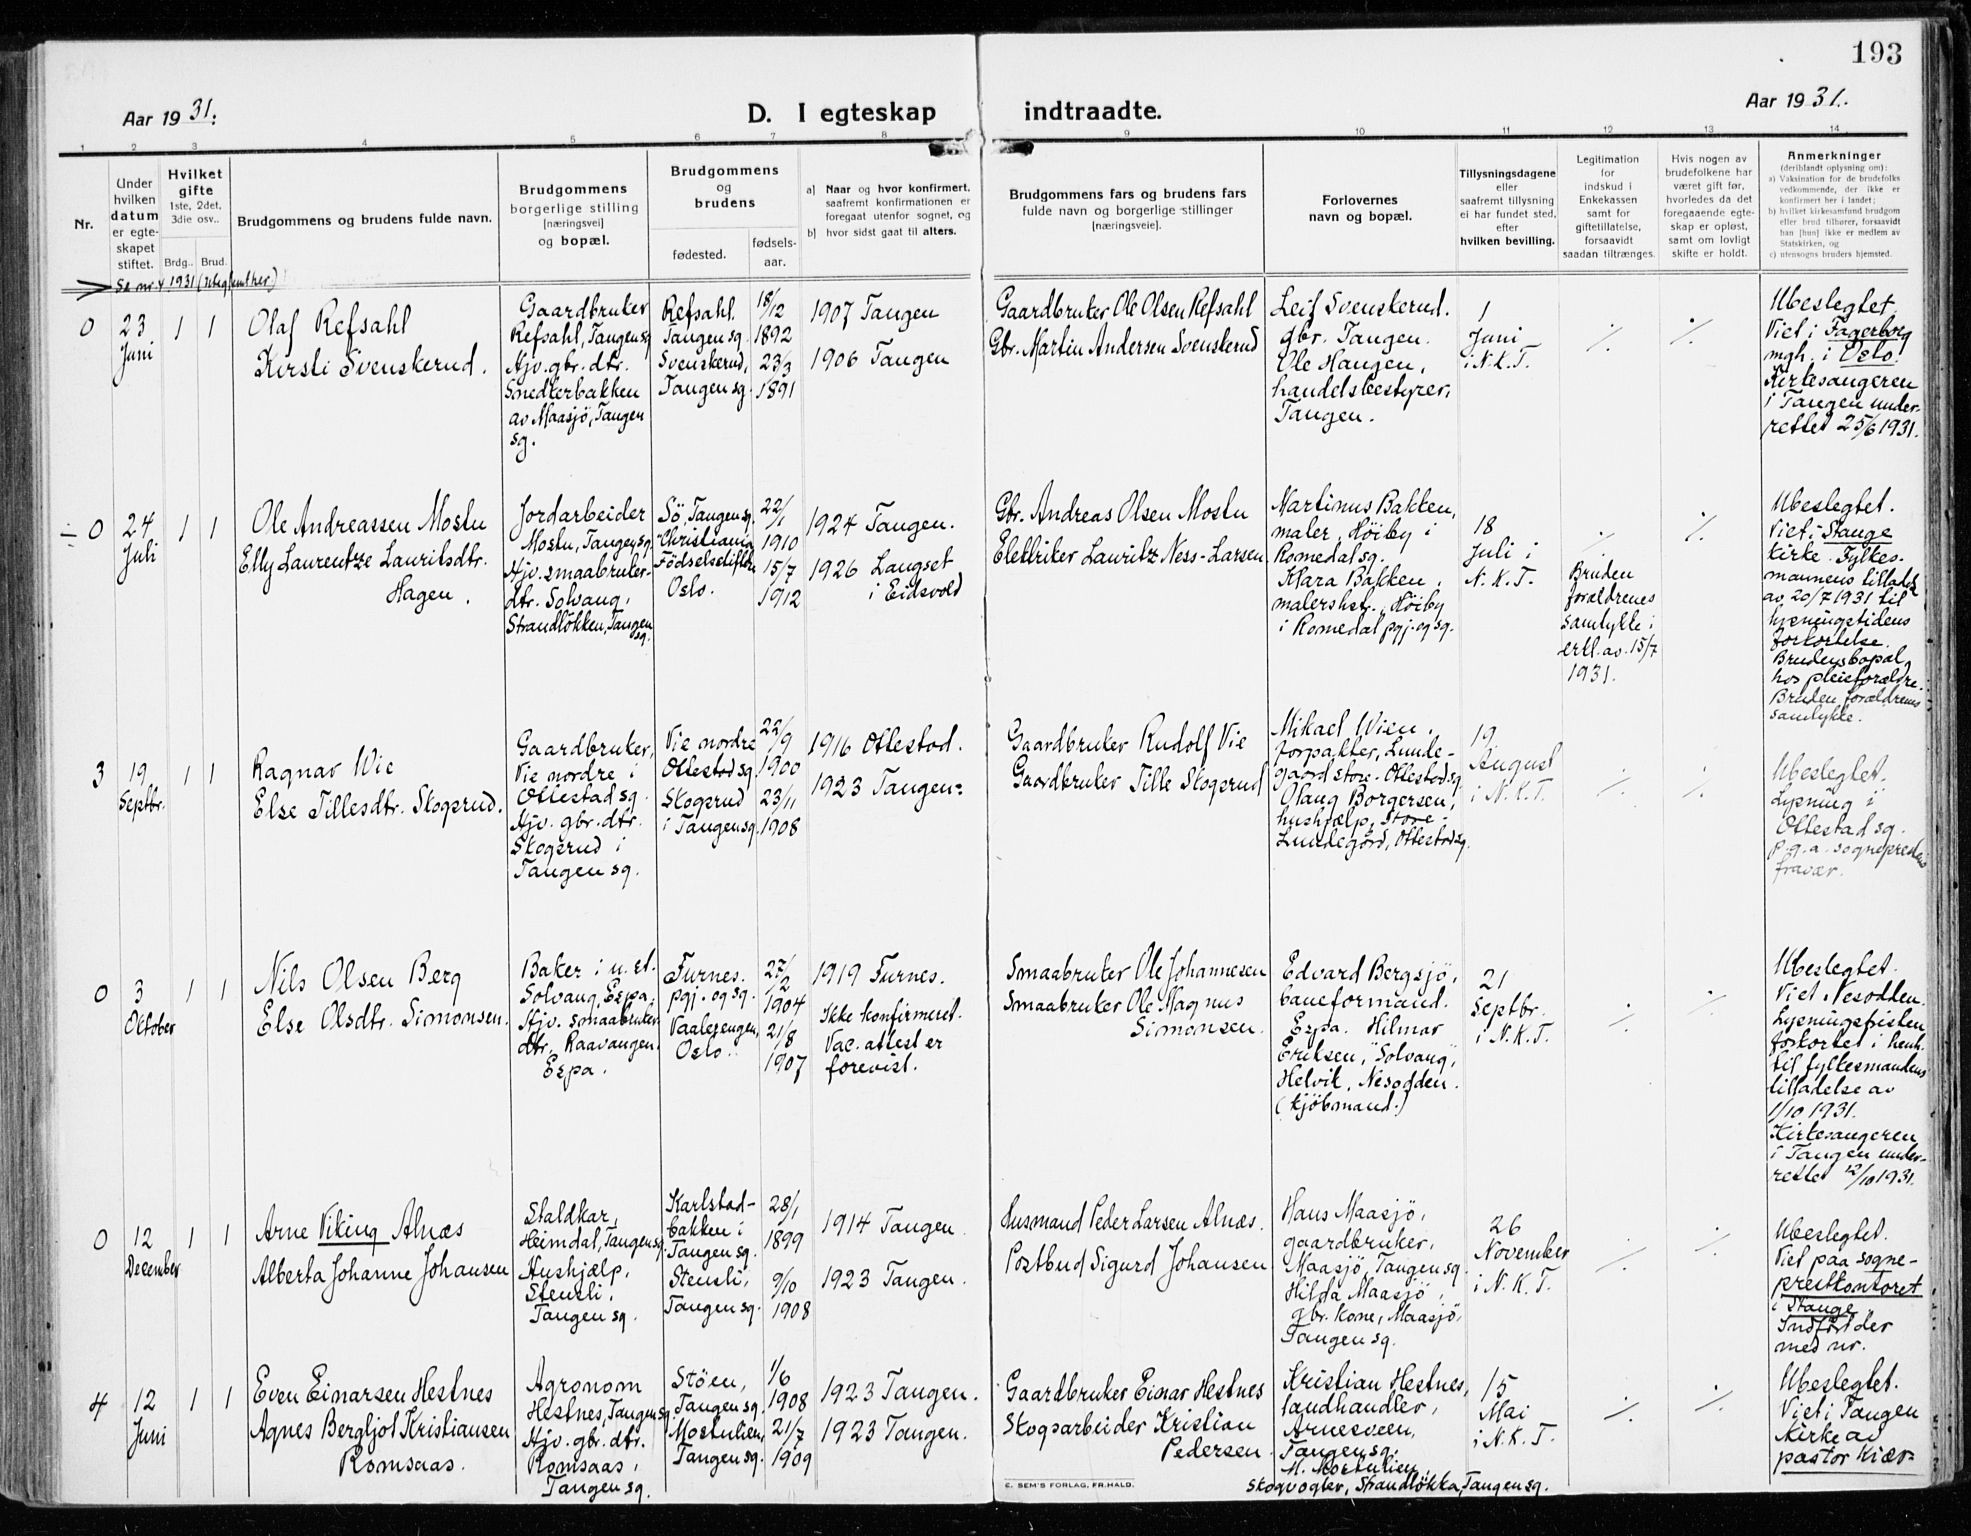 193
Aar 1931.
D. I egteskap
indtraadte.
Aar 1931.
1 2 3 4 5 6 7 8 9 10 11 12 13 14
Nr.
Under
hvilken
datum
er egte-
skapet
stiftet.
Hvilket
gifte
1ste, 2det,
3die osv..
Brdg.. Brud.
Brudgommens og brudens fulde navn.
Brudgommens
borgerlige stilling
[næringsvei]
og bopæl.
Brudgommens
og
brudens
fødested.
fødsels-
aar.
a) Naar og hvor konfirmert.
saafremt konfirmationen er
foregaat utenfor sognet, og
b) hvor sidst gaat til alters.
Brudgommens fars og brudens fars
fulde navn og borgerlige stillinger
[næringsveie].
Forlovernes
navn og bopæl.
Tillysningsdagene
eller
saafremt tillysning
ei har fundet sted,
efter
hvilken bevilling.
Legitimation
for
indskud i
Enkekassen
samt for
giftetillatelse,
forsaavidt
saadan tiltrænges.
Hvis nogen av
brudefolkene har
været gift før,
hvorledes da det
foregaaende egte-
skap er opløst,
samt om lovligt
skifte er holdt.
Anmerkninger
(deriblandt oplysning om):
a) Vaksination for de brudefolks
vedkommende, der ikke er
konfirmert her i landet;
b) hvilket kirkesamfund brudgom
eller brud tilhører, forsaavidt
han [hun] ikke er medlem av
Statskirken, og
c) utensogns bruders hjemsted.
Se nr 4 1931 (uteglemt her)
0
23
Juni
1 1
Olaf Refsahl
Kirsti Svenskerud.
Gaardbruker
Refsahl, Tangen sg
Hjv. gbr. dtr.
Smedkerbakken
av Maasjö, Tangen
sg.
Refsahl.
Tangen sg.
Svenskerud,
Tangen sg.
18/12
1892
23/3
1891
1907 Tangen
1906 Tangen
Gaardbruker Ole Olsen Refsahl
Gbr. Martin Andersen Svenskerud
Leif Svenskerud.
gbr. Tangen.
Ole Haugen,
handelsbestyrer,
Tangen.
1
Juni
i N.K.T.
./.
./.
Ubeslegtet.
Viet i Fagerborg
mgh. i Oslo.
Kirkesangeren
i Tangen under-
rettet 25/6 1931.
÷ 0
24
Juli
1 1
Ole Andreassen Mostu
Elly Laurentze Lauritsdtr.
Hagen.
Jordarbeider
Mostu, Tangen sg.
Hjv. smaabruker-
dtr. Solvang,
Strandlökken, Tangen
sg.
Sö, Tangen sg.
Christiania
Födselsstiftelse
Oslo.
22/1
1910
15/7
1912
1924 Tangen.
1926 Langset
i Eidsvold
Gbr. Andreas Olsen Mostu
Elektriker Lauritz Ness-Larsen
Martinus Bakken,
maler, Höiby i
Romedal sg.
Klara Bakken,
malershst., Höiby
i Romedal pgj. og sg.
18
Juli i
N.K.T.
./.
Bruden
forældrenes
samtykke i
erkl. av. 15/7
1931.
./.
Ubeslegtet.
Viet i Stange
Kirke. Fylkes-
mannens tillatelse
av 20/7 1931 til
lysningstidens
forkortelse.
Brudens bopæl
hos pleieforældre.
Bruden forældrenes
samtykke.
3
19
Septbr.
1 1
Ragnar Wie
Else Tillesdtr. Skogsrud.
Gaardbruker,
Vie nordre i
Ottestad sg.
Hjv. gbr. dtr.
Skogsrud i
Tangen sg.
Vie nordre
Ottestad sg.
Skogsrud
i Tangen sg.
22/9
1900
23/11
1908
1916 Ottestad.
1923 Tangen.
Gaardbruker Rudolf Vie
Gaardbruker Tille Skogsrud
Mikael Wien.
forpakter, Lunde-
gaard store. Ottestad sg.
Olaug Borgersen,
hushjælp, Store-
Lundegård, Ottestad sg.
19
August
i N.K.T.
./.
./.
Ubeslegtet.
Lysning i
Ottestad sg.
p.g.a. sogneprestens
fravær.
0
3
Oktober
1 1
Nils Olsen Berg
Else Olsdtr. Simonsen.
Baker i u.st.
Solvang, Espa.
Hjv. smaabruker-
dtr. Raavangen.
Espa.
Furnes.
pgj. og sg.
Vaalerengen,
Oslo.
27/2
1904
21/8
1907
1919 Furnes.
Ikke konfirmeret.
Vac. attest er
forevist.
Smaabruker Ole Johannesen
Smaabruker Ole Magnus
Simonsen.
Edvard Bergsjö,
baneformand.
Espa. Hilmar
Eriksen, "Solvang",
Helvik, Nesodden.
(kjöbmand.)
21
Septbr.
i N.K.T.
./.
./.
Ubeslegtet.
Viet Nesodden.
Lysningsfristen
forkortet i henh.
til fylkesmandens
tilladelse av
1/10 1931.
Kirkesangeren
i Tangen under-
rettet 12/10 1931.
0
12
December
1 1
Arne Viking Alnæs
Alberta Johanne Johansen
Staldkar,
Heimdal, Tangen sg.
Hushjælp,
Stensli,
Tangen sg.
Karlstad-
bakken i
Tangen sg.
Stensli,
Tangen sg.
28/1
1899
9/10
1908
1914 Tangen
1923 Tangen.
Husmand Peder Larsen Alnæs.
Postbud Sigurd Johansen
Hans Maasjö,
gaardbruker,
Maasjö, Tangen sg.
Hilda Maasjö,
gbr. kone, Maasjö,
Tangen sg.
26
November
i N.K.T.
./.
./.
Ubeslegtet.
Viet paa sogne-
prestkontoret
i Stange
Indfört der
med nr.
4
12
Juni
1 1
Even Einarsen Hestnes
Agnes Bergljot Kristiansen
Romsaas.
Agronom
Hestnes, Tangen sg.
Hjv. gbr. dtr.
Romsaas,
Tangen sg.
Stöen,
Tangen sg.
Mostulien,
Tangen sg.
1/6
1908
21/7
1909
1923 Tangen.
1923 Tangen.
Gaardbruker Einar Hestnes
Skogsarbeider Kristian
Pedersen
Kristian Hestnes,
landhandler,
Arnesveen,
Tangen sg.
M. Mostulien,
skogvogter, Strandlökka, Tangen sg.
15
Mai
i N.K.T.
./.
./.
Ubeslegtet.
Viet i Tangen
Kirke av
pastor Kiær
E. SEM'S FORLAG, FR.HALD.